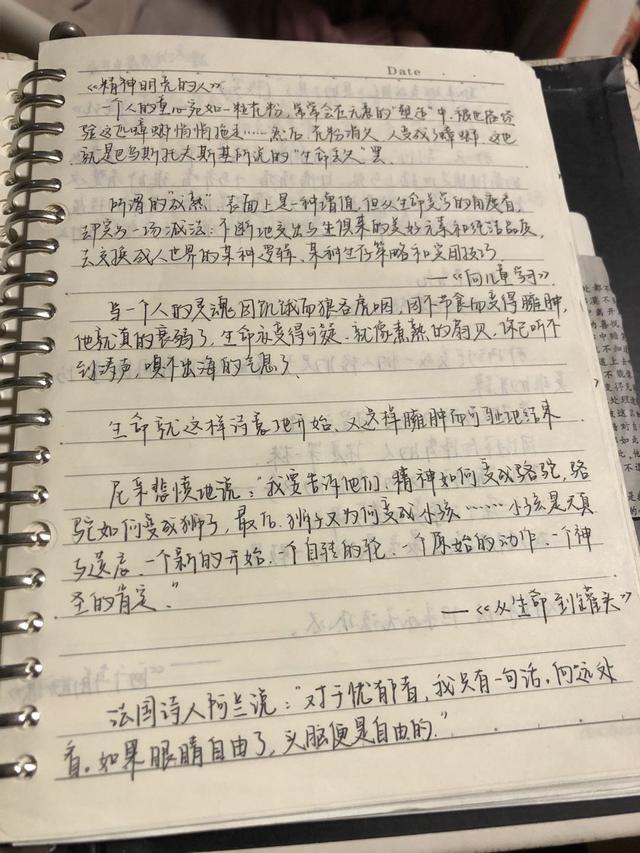 Date
《精神明亮的人》
一个人的童心宛如一粒花粉，常常会在无意的"塑造"中，被世俗经
验这匹蟑螂悄悄拖走……然后，花粉消失，人变成了蟑螂。这也
就是巴乌斯托夫斯基所说的"生命丢失"罢。
所谓的"成熟"，表面上是一种增值，但从生命美学的角度看，
却实为一场减法：不断地交出与生俱来的美好元素和纯洁品质，
去交换成人世界的某种逻辑、某种生存策略和实用技巧。
——《向儿童学习》
当一个人的灵魂因饥饿而狼吞虎咽，因不节食而变得臃肿，
他就真的衰弱了，生命亦变得可疑。就像煮熟的扇贝，你已听不
到涛声，嗅不出海的气息了。
生命就这样诗意地开始，又这样臃肿而可耻地结束
尼采悲愤地说："我要告诉他们，精神如何变成骆驼，骆
驼如何变成狮子，最后，狮子又为何变成小孩……小孩是天真
与遗忘，一个新的开始，一个自转的轮，一个原始的动作，一个神
圣的肯定。"
——《从生命到罐头》
法国诗人阿兰说："对于忧郁者，我只有一句话，向远处
看。如果眼睛自由了，头脑便是自由的。"